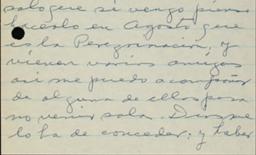 salo gere si vengo pienso
hacerlo en Agosto, que
es la Peregrinacion, y
vienen varios amigos
asi me puedo acompañar
de alguna de ellos para
no venir sola. Dios me
lo ha de conceder; y haber